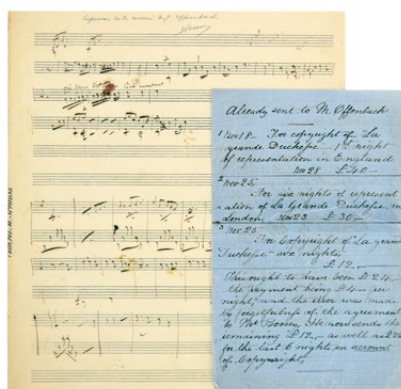 Already sent to M. Offenbach
1 Nov 18 - For copyright of La
grande Duchesse - 1st night
of representation in England
Nov 28 £40 -
2 Nov 25.
For six nights of represent
ation of La Grande Duchesse in
London, Nov 23 £30 -
3 Nov 25
For Copyright of La grande
Duchesse six nights,
£12 -
This ought to have been £24
the payment being £4 - per
night, and the error was made
by forgetfulness of the agreement
to Mr Boosey. He now sends the
remaining £12, as well as £24
for the last 6 nights in account
of Copyright.